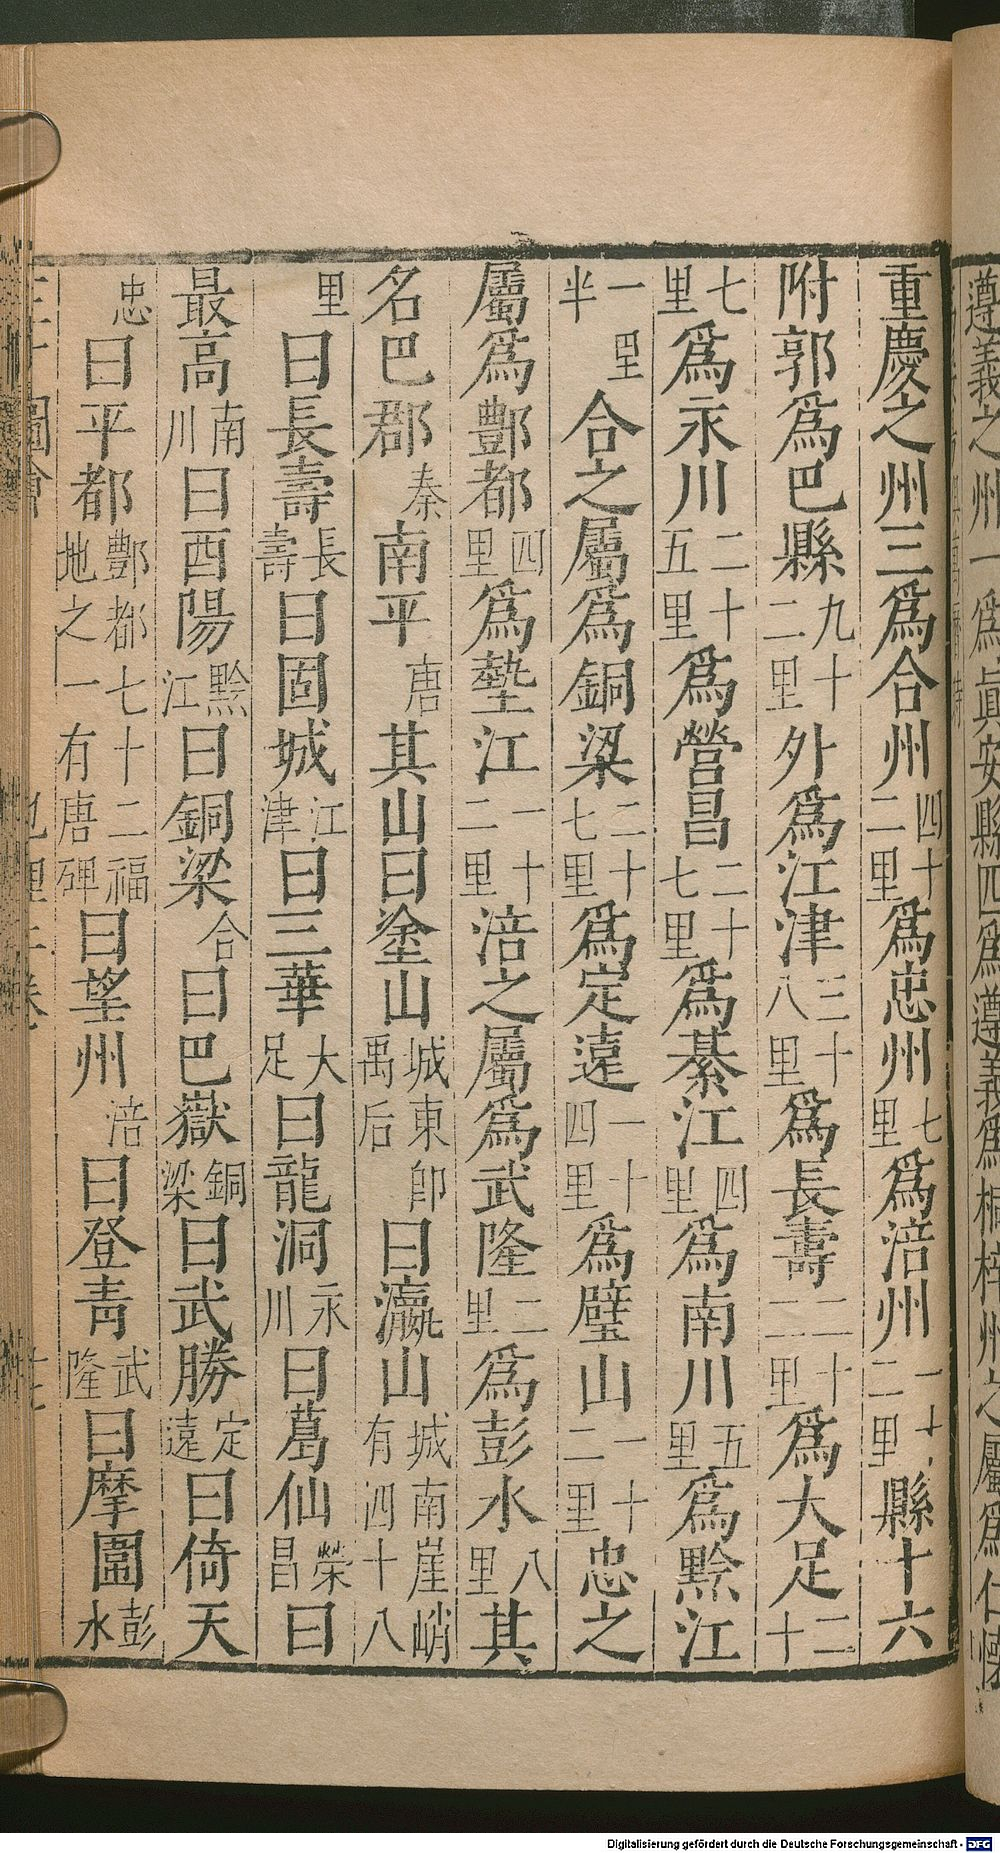 重慶之州三爲合州四十二里爲忠州七里爲涪州一十二里縣十六
附郭爲巴縣九十二里外爲江津三十八里爲長壽一十二里爲大足二十
七里爲永川二十五里爲營昌二十七里爲綦江四里爲南川五里爲黔江
一里半合之屬爲銅梁二十七里爲定遠一十四里爲璧山一十二里忠之
屬爲酆都四里爲墊江一十二里涪之屬爲武隆二里爲彭水八里其
名巴郡秦南平唐其山曰塗山城東卽禹后曰瀛山城南崖峭有四十八
里曰長壽長壽曰固城江津曰三華大足曰龍洞永川曰葛仙榮昌曰
最高南川曰酉陽黔江曰銅梁合曰巴嶽銅梁曰武勝定遠曰倚天
忠曰平都酆都七十二福地之一有唐碑曰望州涪曰登靑武隆曰摩圍彭水
Digitalisierung gefördert durch die Deutsche Forschungsgemeinschaft - DFG